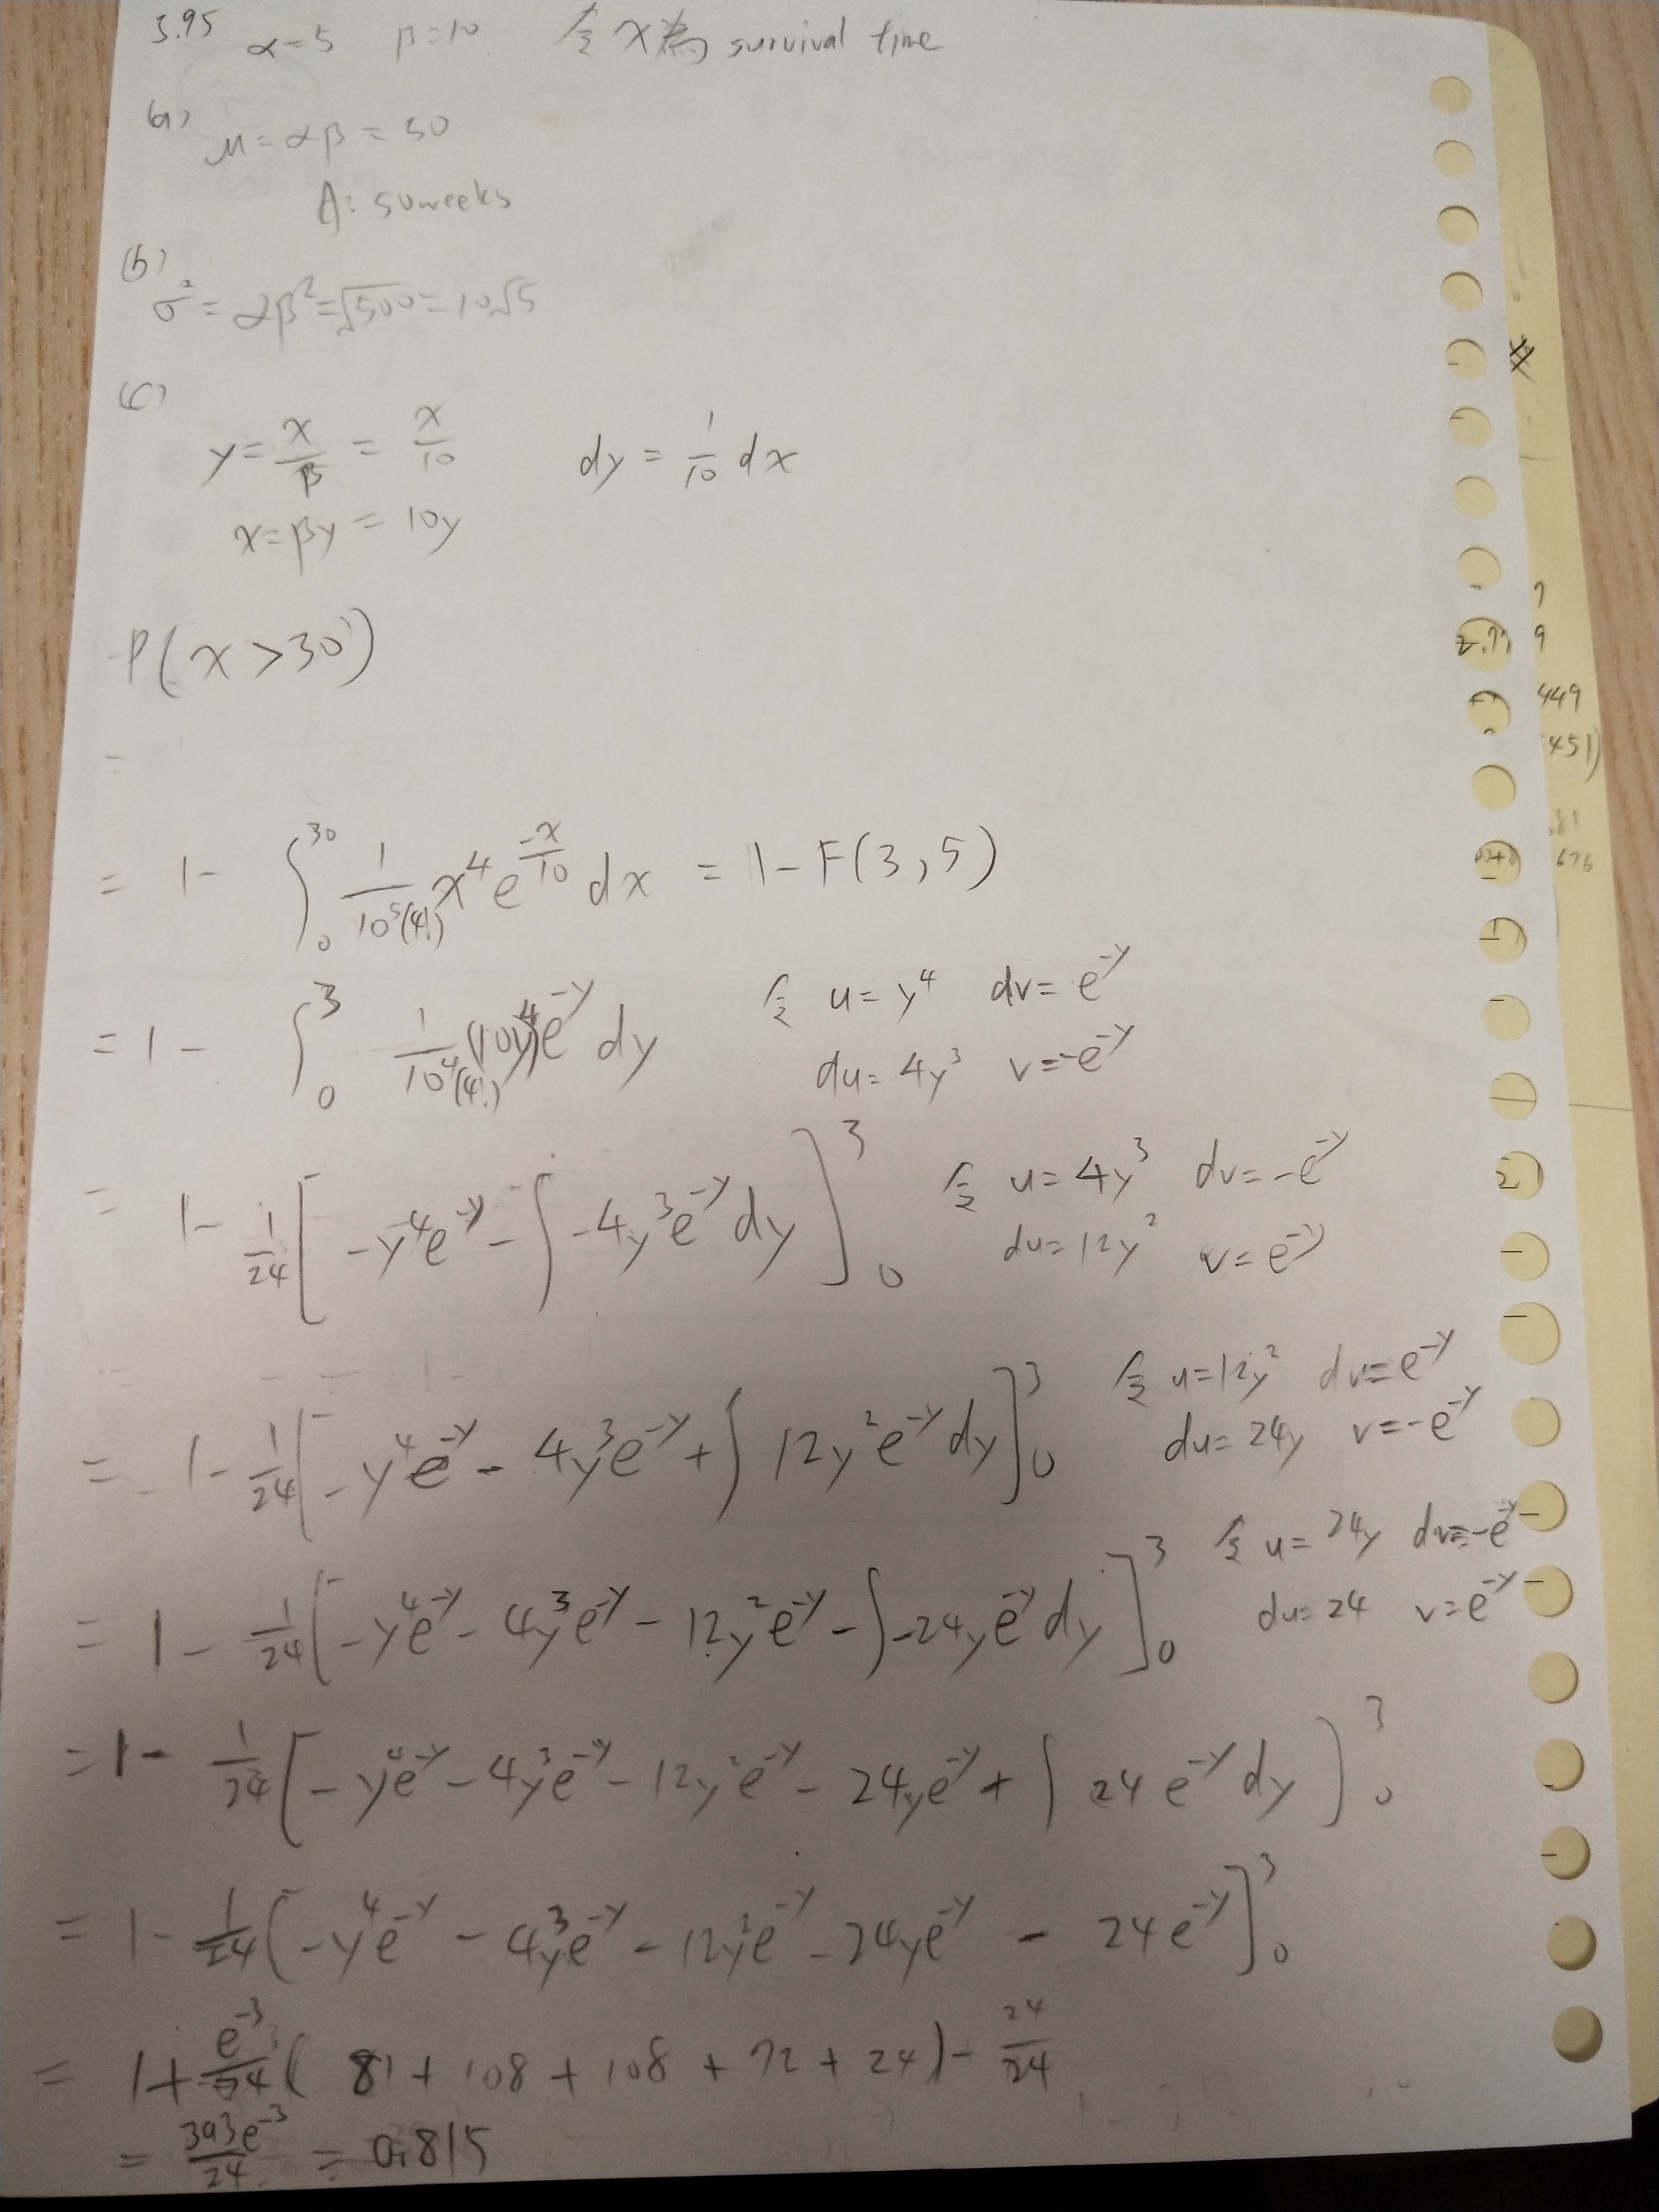 3.95 α=5 β=10 令x為 survival time
(a) μ=αβ=50
A: 50weeks
(b)
σ²=αβ²=√500=10√5
(c)
y=x/β = x/10 dy = 1/10 dx
x=βy = 10y
P(x>30)
=
= 1- ∫₀³⁰ 1/(10⁵(4!)) x⁴ e^(-x/10) dx = 1-F(3,5)
=1- ∫₀³ 1/(10⁴(4!)) (10y)⁴ e^-y dy 令 u=y⁴ dv=e^-y
du=4y³ v=-e^-y
= 1- 1/24 [-y⁴e^-y - ∫-4y³e^-y dy]₀³ 令 u=4y³ dv=-e^-y
du=12y² v=e^-y
= 1- 1/24 [-y⁴e^-y - 4y³e^-y + ∫12y²e^-y dy]₀³ 令 u=12y² dv=e^-y
du=24y v=-e^-y
= 1- 1/24 [-y⁴e^-y - 4y³e^-y - 12y²e^-y - ∫-24ye^-y dy]₀³ 令 u=24y dv=-e^-y
du=24 v=e^-y
=1- 1/24 [-y⁴e^-y - 4y³e^-y - 12y²e^-y - 24ye^-y + ∫24e^-y dy]₀³
= 1- 1/24 [-y⁴e^-y - 4y³e^-y - 12y²e^-y - 24ye^-y - 24e^-y]₀³
= 1+ e^-3/24 (81+108+108+72+24)- 24/24
= 393e^-3/24 = 0.815
9
449
451)
676